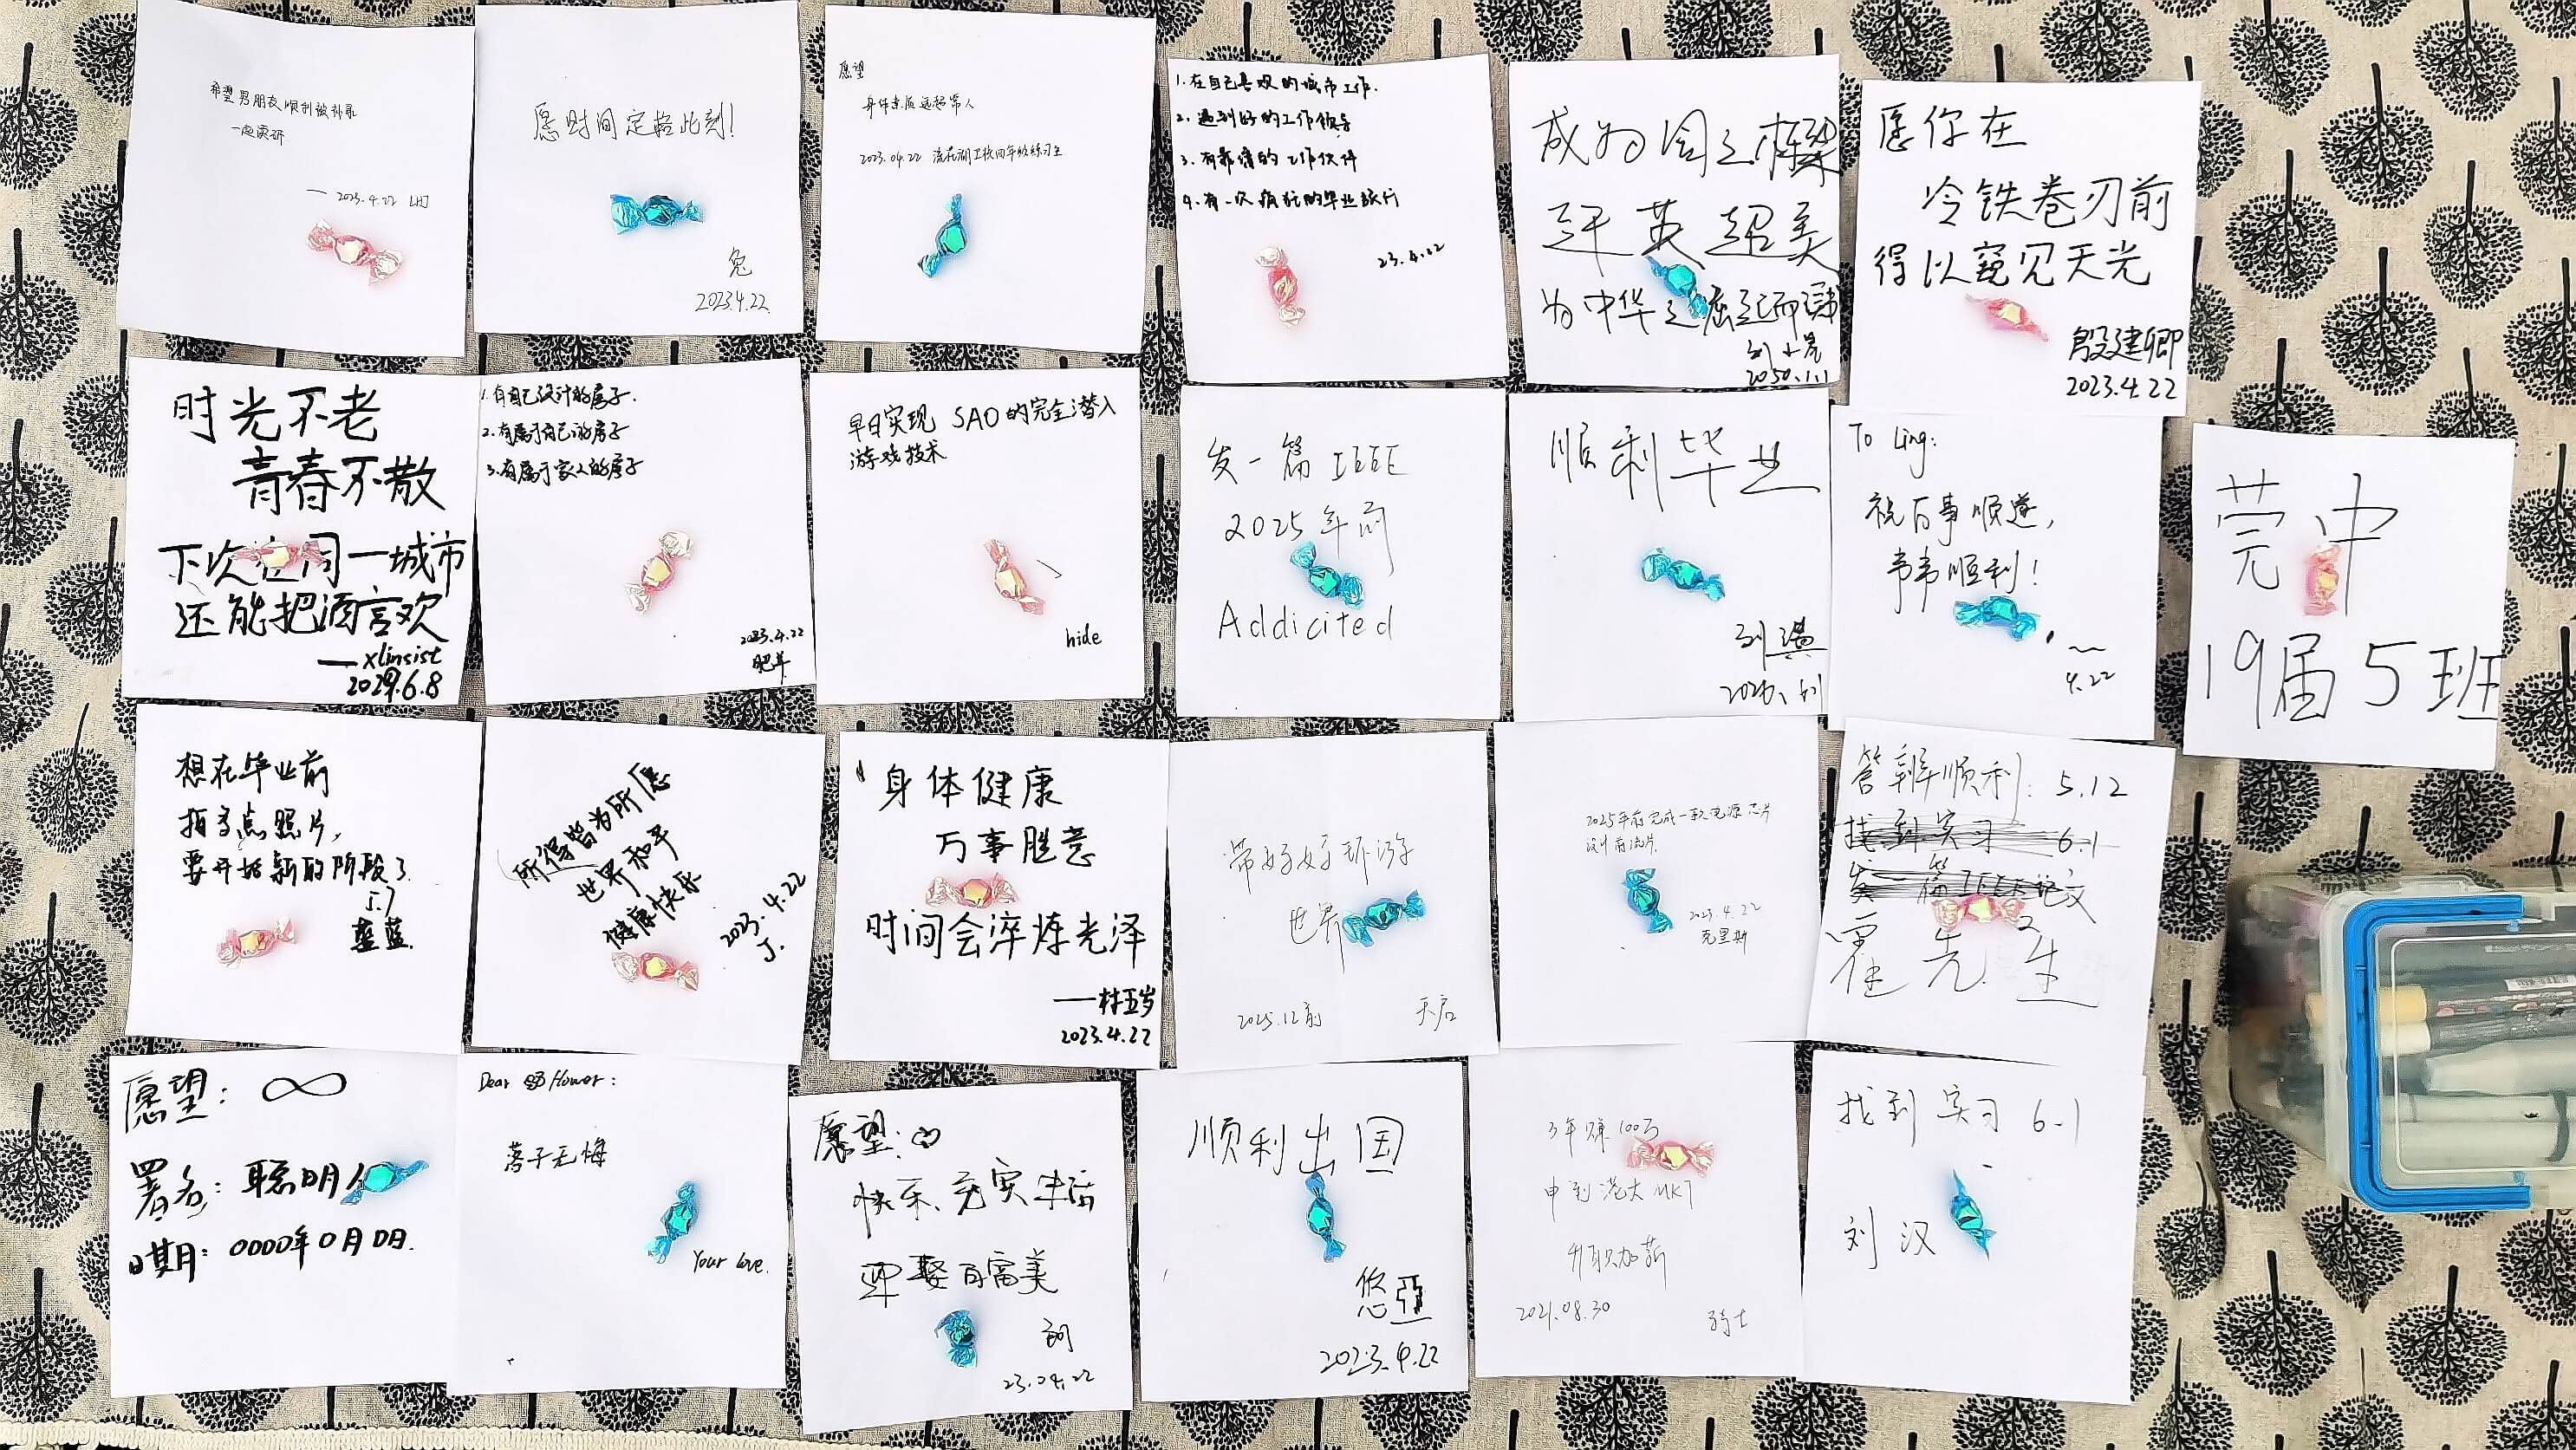 希望男朋友顺利被补录
一起读研
— 2023.4.22 LHJ
愿时间定格此刻!
兔
2023.4.22
愿望
身体素质远超常人
2023.04.22
1.在自己喜欢的城市工作.
2.遇到好的工作领导
3.有靠谱的工作伙伴
4.有一次疯狂的毕业旅行
23.4.22
成为国之栋梁
赶英超美
为中华之崛起而
2050.1.1
愿你在
冷铁卷刃前
得以窥见天光
殷建卿
2023.4.22
时光不老
青春不散
下次 同一城市
还能把酒言欢
—xlinsist
6.8
1.有自己设计的房子.
2.有属于自己的房子
3.有属于家人的房子
2023.4.22
肥羊
早日实现 SAO的完全潜入
游戏技术
hide
发一篇IEEE
2025年前
Addicited
顺利毕业
To Ling:
祝百事顺遂,
韦韦顺利!
~
4.22
莞中
19届5班
想在毕业前
拍多点照片,
要开始新的阶段了
5.7
蓝蓝.
所得皆为所愿
世界和平
健康快乐
2023.4.22
J.
身体健康
万事胜意
时间会淬炼光泽
——林五岁
2023.4.22
带好好环游
世界
2025.12前 天启
2025年前完成一款电源芯片
设计前流片.
2023.4.22
克里斯
答辩顺利: 5.12
找到实习 6.1
发一篇IEEE论文
霍先生
愿望: ∞
署名: 聪明人
日期: 0000年0月0日.
Dear flower:
落子无悔
Your love.
愿望:
快乐、充实生活
迎娶白富美
23.04.22
顺利出国
悠亞
2023.4.22
3年赚100万
申到港大MKT
升职加薪
08.30 骑士
找到实习 6.1
刘汉